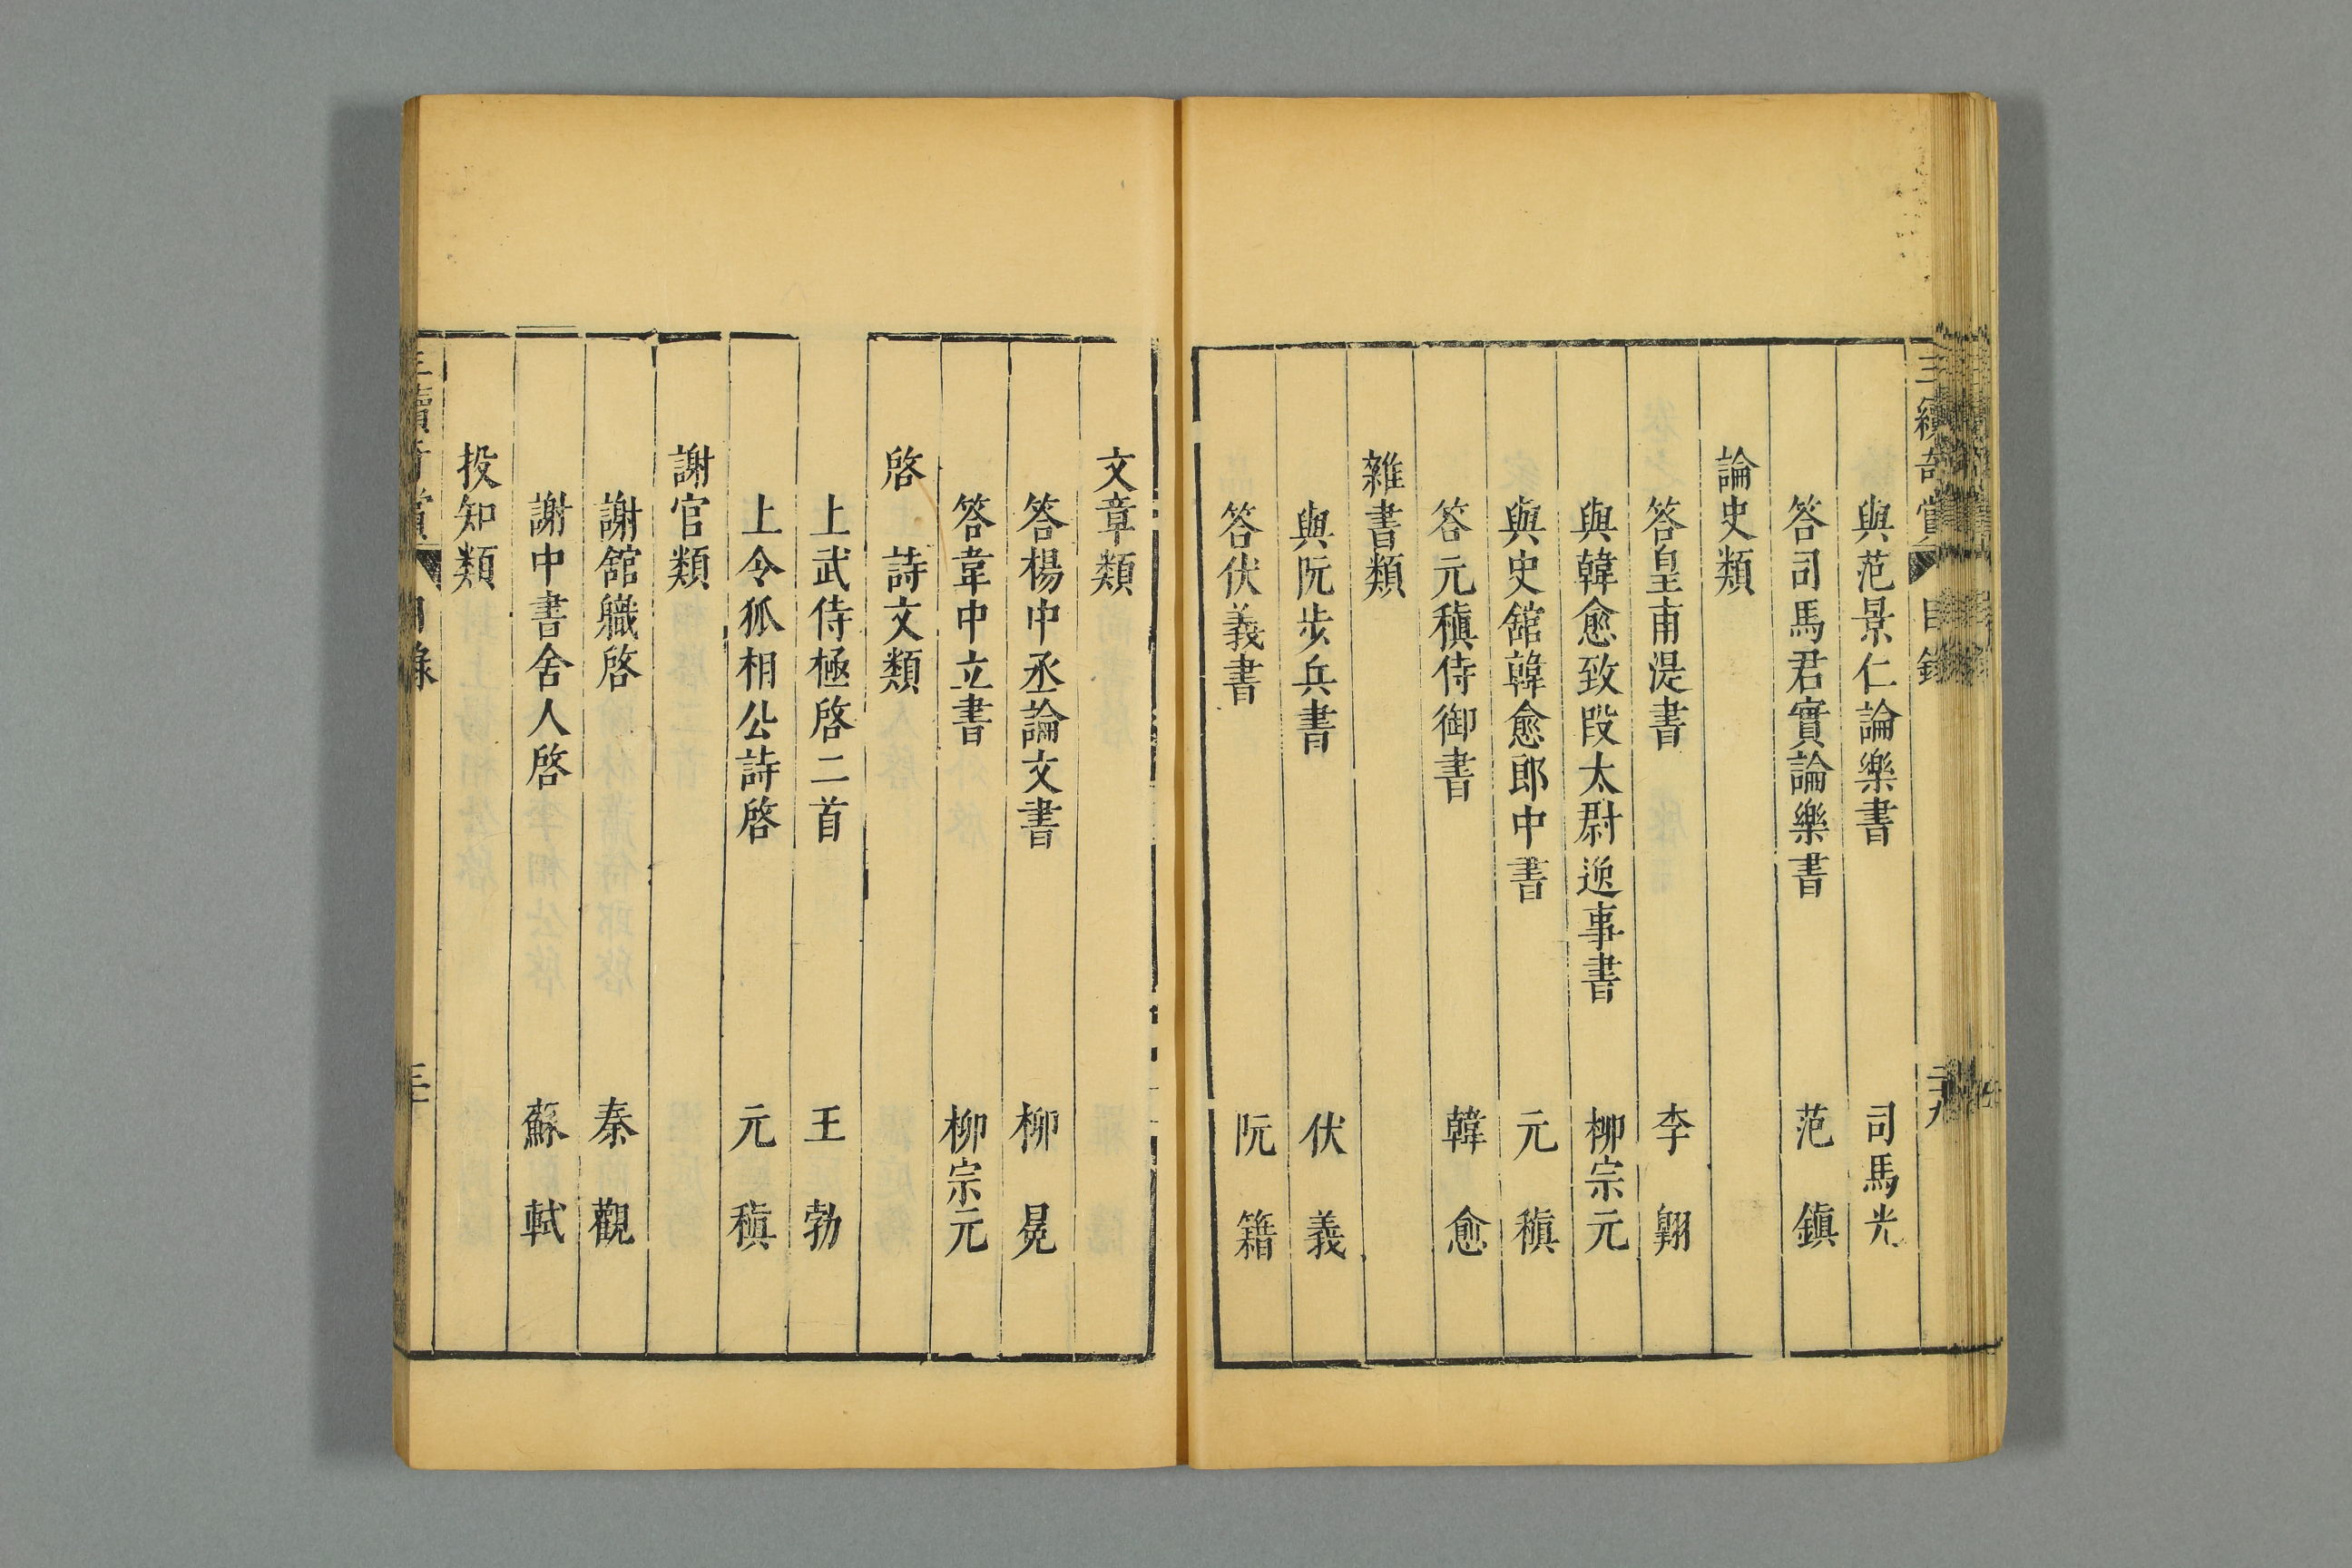 三續奇賞 目錄 二九
與范景仁論樂書 司馬光
答司馬君實論樂書 范鎮
論史類
答皇甫湜書 李翺
與韓愈致段太尉逸事書 柳宗元
與史舘韓愈郎中書 元稹
答元稹侍御書 韓愈
雜書類
與阮步兵書 伏義
答伏義書 阮籍
文章類
答楊中丞論文書 柳冕
答韋中立書 柳宗元
啓 詩文類
上武侍極啓二首 王勃
上令狐相公詩啓 元稹
謝官類
謝舘職啓 秦觀
謝中書舍人啓 蘇軾
投知類
三續奇賞 目錄 三十